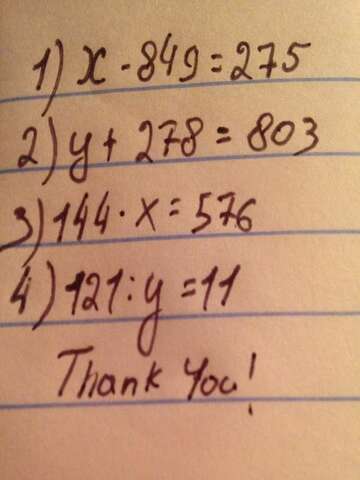 1) x - 849 = 275
2) y + 278 = 803
3) 144 · x = 576
4) 121 : y = 11
Thank You!